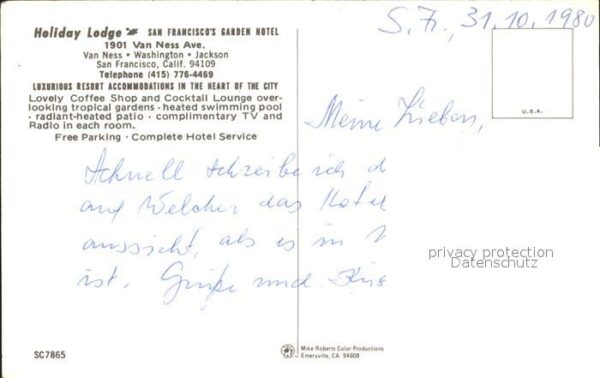 Holiday Lodge SAN FRANCISCO'S GARDEN HOTEL
1901 Van Ness Ave.
Van Ness • Washington • Jackson
San Francisco, Calif. 94109
Telephone (415) 776-4469
LUXURIOUS RESORT ACCOMMODATIONS IN THE HEART OF THE CITY
Lovely Coffee Shop and Cocktail Lounge over-
looking tropical gardens · heated swimming pool
· radiant-heated patio · complimentary TV and
Radio in each room.
Free Parking · Complete Hotel Service
S.Fr., 31.10.1980
U.S.A.
Meine Lieben,
Schnell schreibe ich d
auf welcher das Hotel
aussieht, als es in
ist. Grüße und Küs
privacy protection
Datenschutz
SC7865
Mike Roberts Color Productions
Emeryville, CA 94608